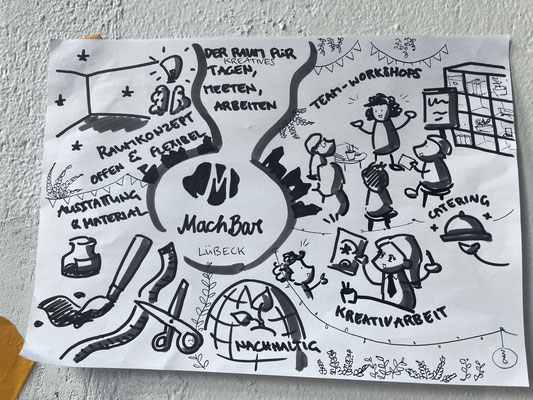 DER RAUM FÜR
KREATIVES
TAGEN,
MEETEN,
ARBEITEN
RAUMKONZEPT
OFFEN & FLEXIBEL
TEAM-WORKSHOPS
AUSSTATTUNG
& MATERIAL
M
MachBar
LÜBECK
CATERING
KREATIVARBEIT
NACHHALTIG